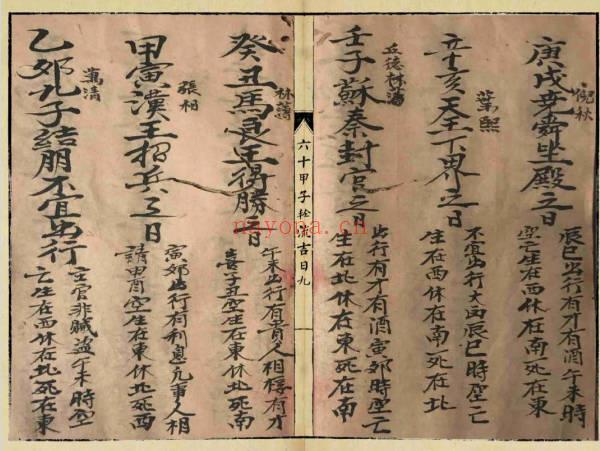 庚戌堯舜坐殿之日
倪秋
辰巳出行有才有酒午未時
空亡生在西休在南死在東
辛亥天王下界之日
葉熙
不宜出行大凶辰巳時空亡
生在西休在南死在北
壬子蘇秦封官之日
丘德林蕩
出行有才有酒寅郊時空亡
生在北休在東死在南
六十甲子轮流吉日九
癸丑馬援年得勝之日
林蕩
午未出行有貴人相樑有才
喜子丑空生在東休北死南
甲寅漢王招兵之日
張相
寅郊出行有利息凡事人相
請申酉空生在東休北死西
乙郊孔子結朋不宜出行
萬清
主官非賊盗午未時空
亡生在西休在北死在東
nayona.cn